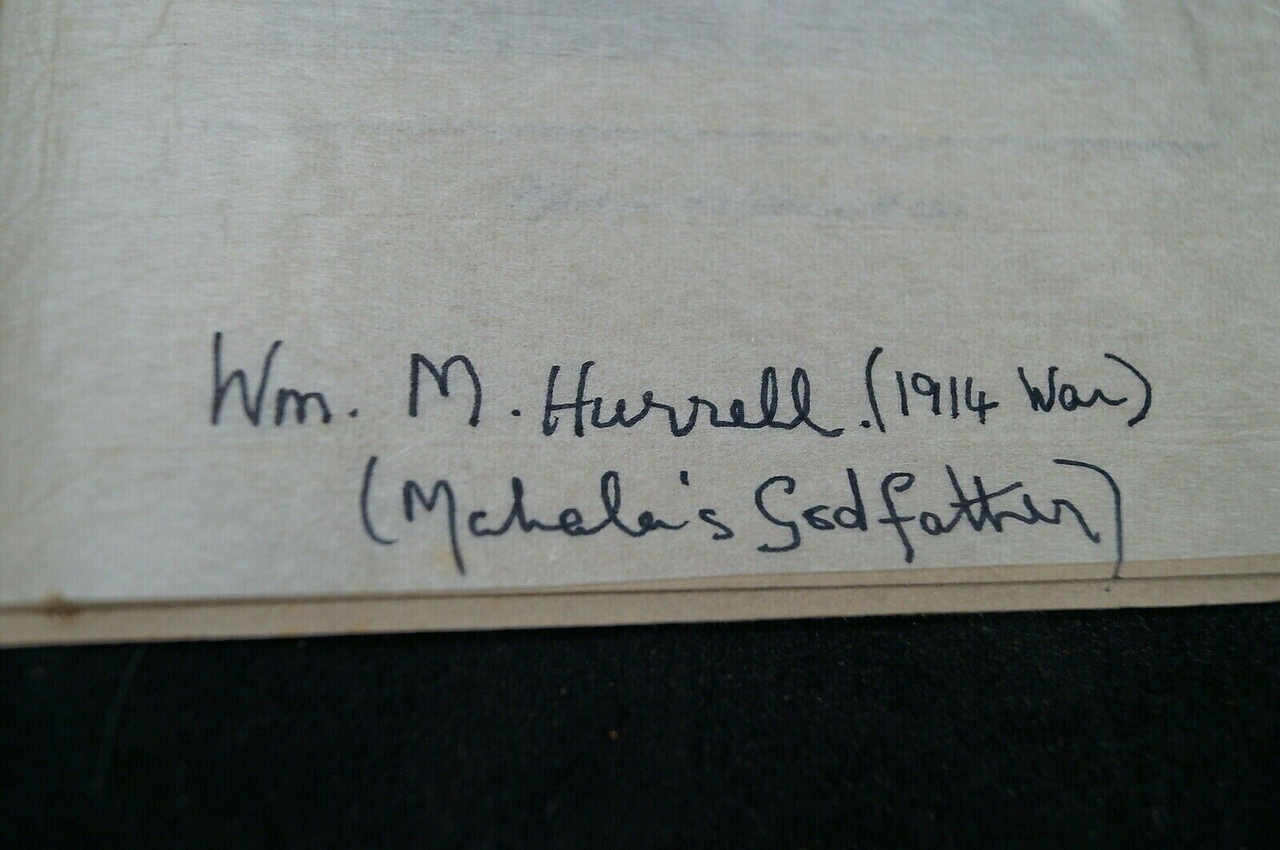 Wm. M. Hurrell. (1914 War)
(Mahala's Godfather)